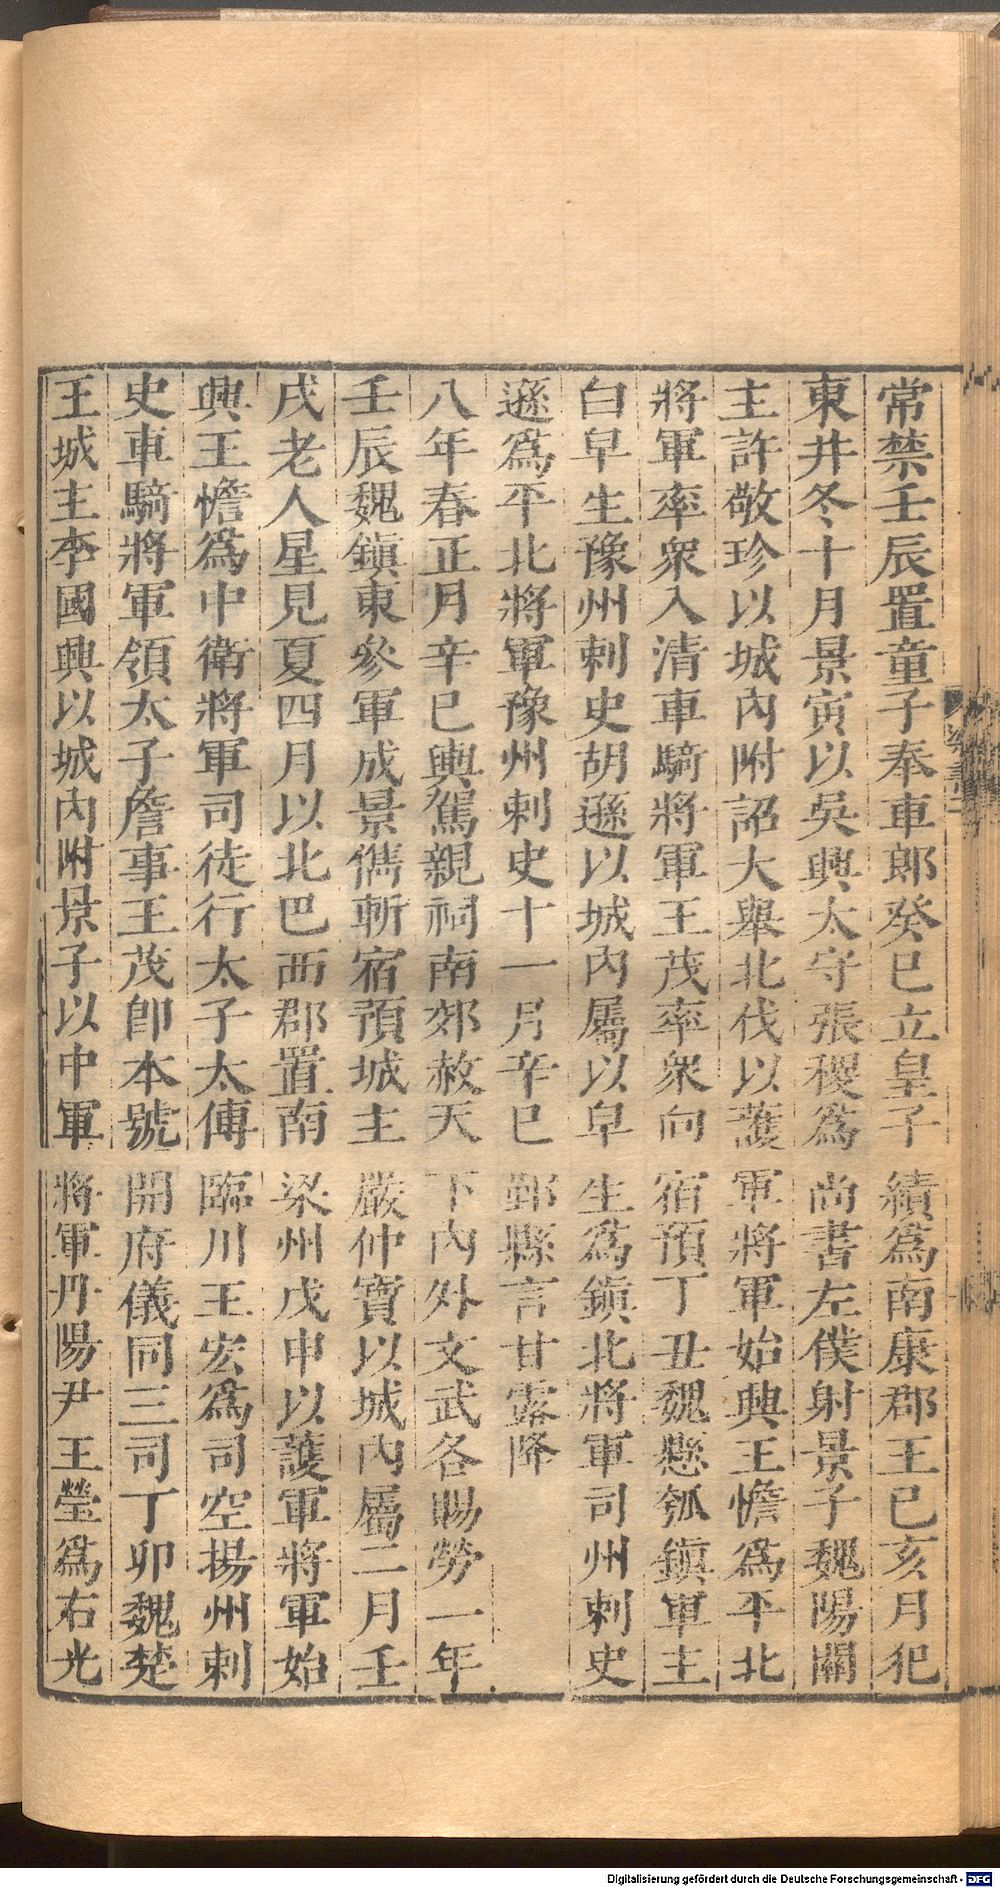 常禁壬辰置童子奉車郎癸巳立皇子績爲南康郡王己亥月犯
東井冬十月景寅以吳興太守張稷爲尚書左僕射景子魏陽關
主許敬珍以城內附詔大舉北伐以護軍將軍始興王憺爲平北
將軍率衆入清車騎將軍王茂率衆向宿預丁丑魏懸瓠鎮軍主
白早生豫州刺史胡遜以城內屬以早生爲鎮北將軍司州刺史
遜爲平北將軍豫州刺史十一月辛巳鄞縣言甘露降
八年春正月辛巳輿駕親祠南郊赦天下內外文武各賜勞一年
壬辰魏鎮東參軍成景儁斬宿預城主嚴仲寶以城內屬二月壬
戌老人星見夏四月以北巴西郡置南梁州戊申以護軍將軍始
興王憺爲中衛將軍司徒行太子太傅臨川王宏爲司空揚州刺
史車騎將軍領太子詹事王茂卽本號開府儀同三司丁卯魏楚
王城主李國興以城內附景子以中軍將軍丹陽尹王瑩爲右光
Digitalisierung gefördert durch die Deutsche Forschungsgemeinschaft - DFG